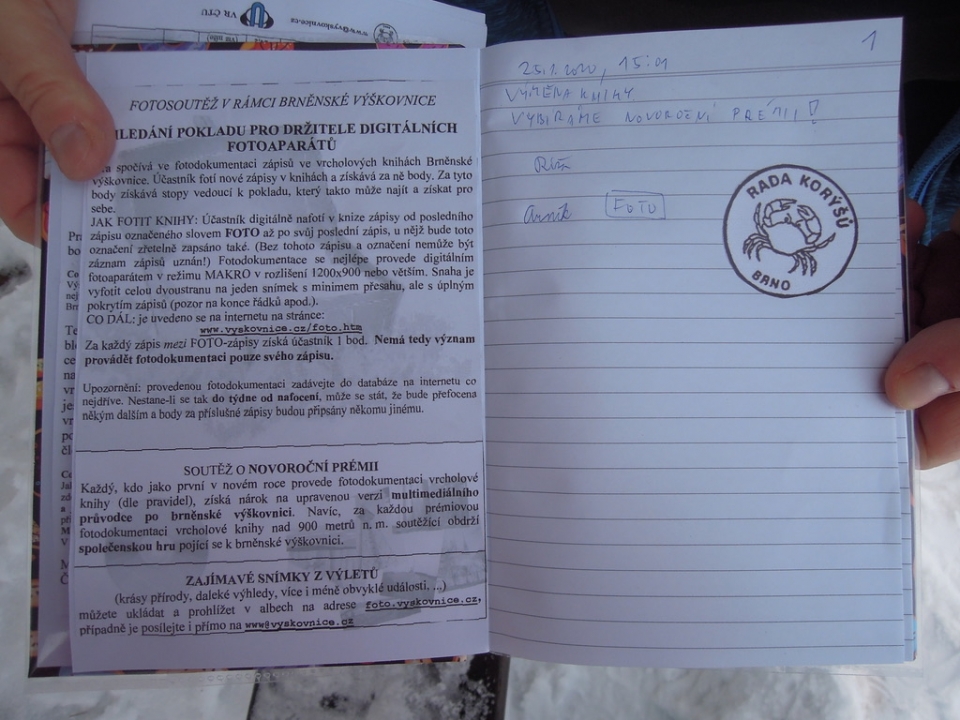 VR ČTU
www@vyskovnice.cz
FOTOSOUTĚŽ V RÁMCI BRNĚNSKÉ VÝŠKOVNICE
HLEDÁNÍ POKLADU PRO DRŽITELE DIGITÁLNÍCH
FOTOAPARÁTŮ
spočívá ve fotodokumentaci zápisů ve vrcholových knihách Brněnské
výškovnice. Účastník fotí nové zápisy v knihách a získává za ně body. Za tyto
body získává stopy vedoucí k pokladu, který takto může najít a získat pro
sebe.
JAK FOTIT KNIHY: Účastník digitálně nafotí v knize zápisy od posledního
zápisu označeného slovem FOTO až po svůj poslední zápis, u nějž bude toto
označení zřetelně zapsáno také. (Bez tohoto zápisu a označení nemůže být
záznam zápisů uznán!) Fotodokumentace se nejlépe provede digitálním
fotoaparátem v režimu MAKRO v rozlišení 1200x900 nebo větším. Snaha je
vyfotit celou dvoustranu na jeden snímek s minimem přesahu, ale s úplným
pokrytím zápisů (pozor na konce řádků apod.).
CO DÁL: je uvedeno se na internetu na stránce:
www.vyskovnice.cz/foto.htm
Za každý zápis mezi FOTO-zápisy získá účastník 1 bod. Nemá tedy význam
provádět fotodokumentaci pouze svého zápisu.
Upozornění: provedenou fotodokumentaci zadávejte do databáze na internetu co
nejdříve. Nestane-li se tak do týdne od nafocení, může se stát, že bude přefocena
někým dalším a body za příslušné zápisy budou připsány někomu jinému.
SOUTĚŽ O NOVOROČNÍ PRÉMII
Každý, kdo jako první v novém roce provede fotodokumentaci vrcholové
knihy (dle pravidel), získá nárok na upravenou verzi multimediálního
průvodce po brněnské výškovnici. Navíc, za každou prémiovou
fotodokumentaci vrcholové knihy nad 900 metrů n. m. soutěžící obdrží
společenskou hru pojící se k brněnské výškovnici.
ZAJÍMAVÉ SNÍMKY Z VÝLETŮ
(krásy přírody, daleké výhledy, více i méně obvyklé události, ...)
můžete ukládat a prohlížet v albech na adrese foto.vyskovnice.cz,
případně je posílejte i přímo na www@vyskovnice.cz
1
25.1.2020, 15:01
VÝMĚNA KNIHY
VYBÍRÁME NOVOROČNÍ PRÉMII!
FOTO
RADA KORÝŠŮ
BRNO